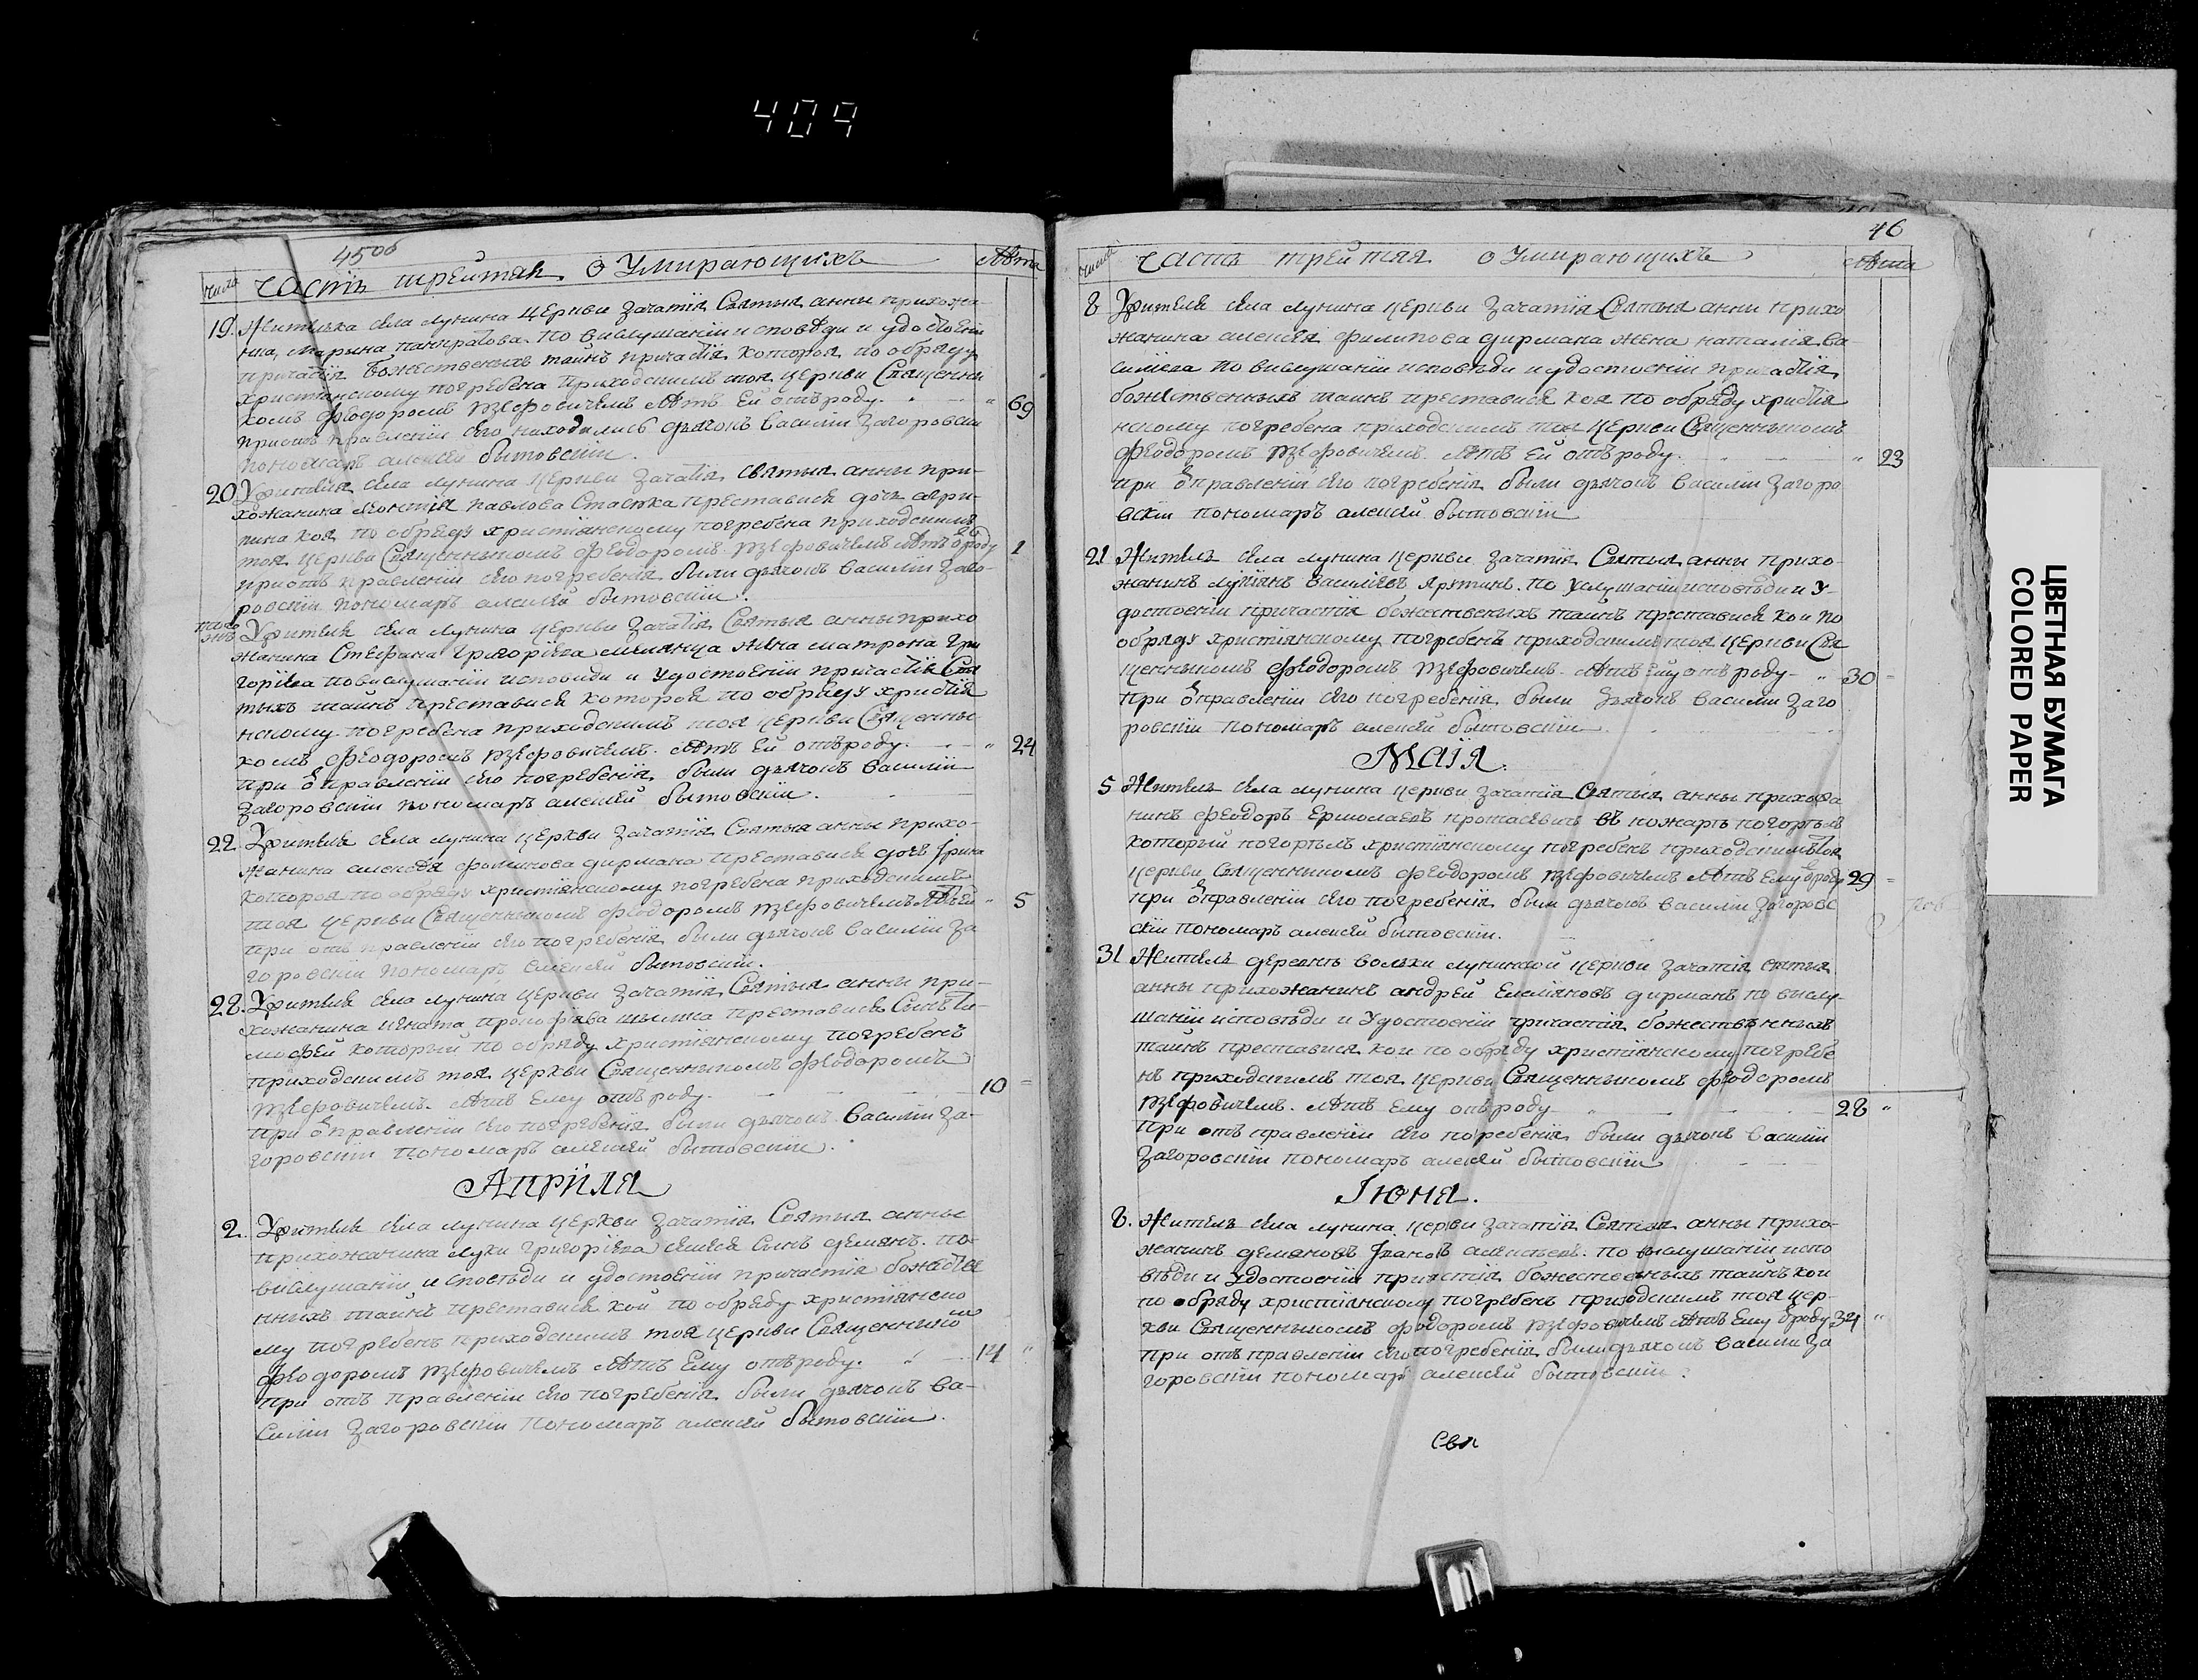 409
45об
числа Часть трейтяя О Умирающихъ Лѣта
19. Жителка села Лунина церкви Зачатія Святыя анны прихожа-
нка, Марына панкратова по вислушаніи исповѣди и удостоени
причастія Божественыхъ таинъ которая по обряду
христіянскому погребена приходскимъ тоя церкви Священни
комъ Феодоромъ Лѣтъ Ей отъ роду. 69
при отъ правленіи его находились дьячокъ василіи загоровскіи
пономаръ алексѣй бытовскіи.
20. Жителя села лунина церкви Зачатія святыя анны при-
хожанина леонтія павлова Стасюка преставися дочъ агри-
пина коя по обряду христіянскому погребена приходскимъ
тоя церкви Священникомъ феодоромъ Лѣтъ ѿроду 1
при отъ правленіи его погребенія были дьячокъ василіи заго-
ровскіи пономаръ алексѣй бытовскіи.
Жителя села лунина церкви Зачатія Святыя анны прихо
жанина Стефана Григоріева жена матрона Гри
горіева по вислушаніи исповѣди и удостоеніи причастія Свя
тыхъ таинъ преставися которая по обряду христія
нскому погребена приходскимъ тоя церкви Священни-
комъ феодоромъ Лѣтъ ей отъ роду. 24
при ѿправленіи его погребенія были дьячокъ василіи
загоровскіи пономаръ алексѣй бытовскіи.
22. Жителя села лунина церкви зачатія Святыя анны прихо-
жанина алексѣя дирмана преставися дочъ Ірина
которая по обряду христіянскому погребена приходскимъ
тоя церкви Священникомъ феодоромъ 5
при отъ правленіи его погребенія были дьячокъ василіи за
горовскіи пономаръ алексѣй бытовскіи.
28. Жителя села лунина церкви зачатія Святыя анны при-
хожанина игната преставися Сынъ ти-
мофей который по обряду христіянскому погребенъ
приходскимъ тоя церкви Священникомъ феодоромъ
Лѣтъ Ему отъ роду. 10
при ѿправленіи его погребенія были дьячокъ Василіи за-
горовскіи пономаръ алексѣй бытовскіи.
Апріля
2. Жителя села лунина церкви зачатія Святыя анны
прихожанина луки Григоріева Сынъ демянъ. по-
вислушаніи исповѣди и удостоеніи причастія божестве
нныхъ таинъ преставися кой по обряду христіянско
му погребенъ приходскимъ тоя церкви Священникомъ
феодоромъ Лѣтъ Ему отъ роду. 14
при отъ правленіи его погребенія были дьячокъ ва-
силіи загоровскіи пономаръ алексѣй бытовскіи.
46
числа Часть трейтяя о Умирающихъ Лѣта
8 Жителя села лунина церкви Зачатія Святыя анны прихо
жанина алексѣя филипова дирмана жена наталія ва-
силиева по вислушаніи исповѣди и удостоеніи причастія
божественныхъ таинъ преставися коя по обряду христія
нскому погребена приходскимъ тоя церкви Священникомъ
Феодоромъ Лѣтъ Ей отъ роду. 23
при ѿправленіи его погребенія были дьячокъ василіи загоро
вскіи пономаръ алексѣй бытовскіи
21 Жителъ села лунина церкви зачатія Святыя анны прихо-
жанинъ василіевъ по услушаніи исповѣди и у-
достоеніи причастія божественихъ таинъ преставися кои по
обряду христіянскому погребенъ приходскимъ тоя церкви Свя
щенникомъ феодоромъ Лѣтъ Ему отъ роду - 30
при ѿправленіи его погребенія были дьячокъ василіи заго
ровскіи пономаръ алексѣй бытовскіи
Маія.
5 Жителъ села лунина церкви зачатія Святыя анны прихожа
нинъ феодоръ Ермолаевъ протасевичъ въ пожаръ погорѣлъ
который погорѣлъ христіянскому погребенъ приходскимъ тоя
церкви Священникомъ феодоромъ Лѣтъ Ему ѿроду 29
при ѿправленіи его погребенія были дьячокъ василіи загоровс
скіи пономаръ алексѣй бытовскіи.
31 Жителъ деревнѣ лунинской церкви зачатія святыя
анны прихожанинъ андрей Емеліяновъ дирманъ по вислу-
шаніи исповѣди и удостоеніи причастія божественныхъ
таинъ преставися кои по обряду христіянскому погребе
нъ приходскимъ тоя церкви Священникомъ феодоромъ
Лѣтъ Ему отъ роду 28
При отъ правленіи его погребенія были дьячокъ василіи
загоровскіи пономаръ алексѣй бытовскіи
Іюня.
8. Жителъ села лунина церкви зачатія Святыя анны прихо-
жанинъ демяновъ по вислушаніи испо
вѣди и удостоеніи причастія божественныхъ таинъ кои
по обряду христіянскому погребенъ приходскимъ тоя цер-
кви Священникомъ феодоромъ Лѣтъ Ему ѿроду 34
при отъ правленіи его погребенія были дьячокъ василіи за
горовскіи пономаръ алексѣй бытовскіи
ЦВЕТНАЯ БУМАГА
COLORED PAPER